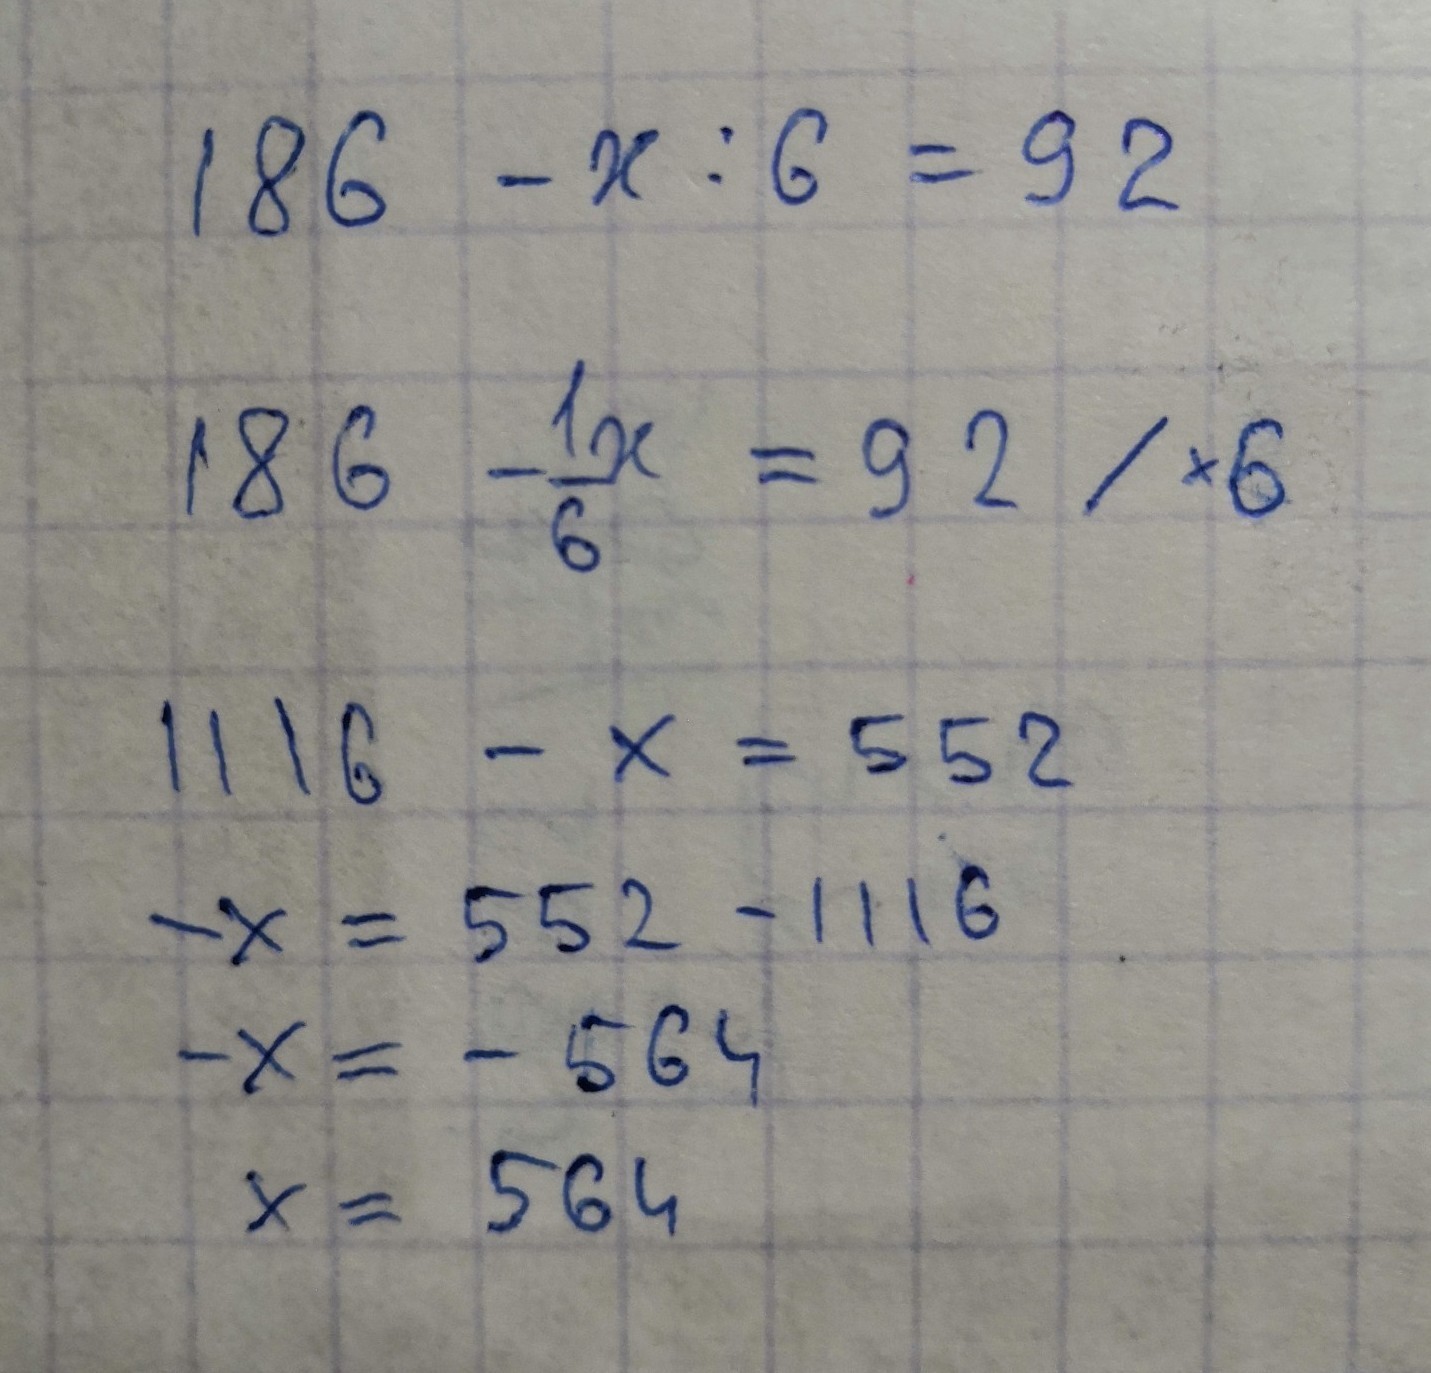 186 - x : 6 = 92
186 - 1/6 x = 92 / ×6
1116 - x = 552
-x = 552 - 1116
-x = - 564
x = 564